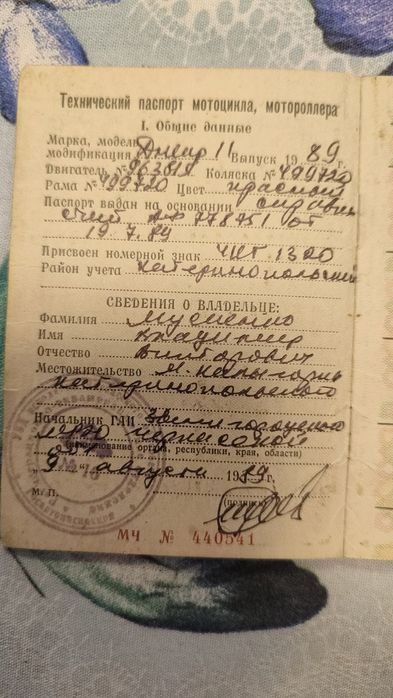 Технический паспорт мотоцикла, мотороллера
I. Общие данные
Марка, модель
модификация Днепр 11 Выпуск 1989 г.
Двигатель № Коляска № 499720
Рама № 499720 Цвет красный
Паспорт выдан на основании справки
счёт 778751 от
19.7.89
Присвоен номерной знак 1320
Район учета Катеринопольский
СВЕДЕНИЯ О ВЛАДЕЛЬЦЕ:
Фамилия
Имя Владимир
Отчество Викторович
Местожительство
Катеринопольского
Начальник ГАИ Звенигородского
МРЭО Черкасской
(наименование органа, республики, края, области)
августа 1989 г.
М. П.
МЧ № 440541